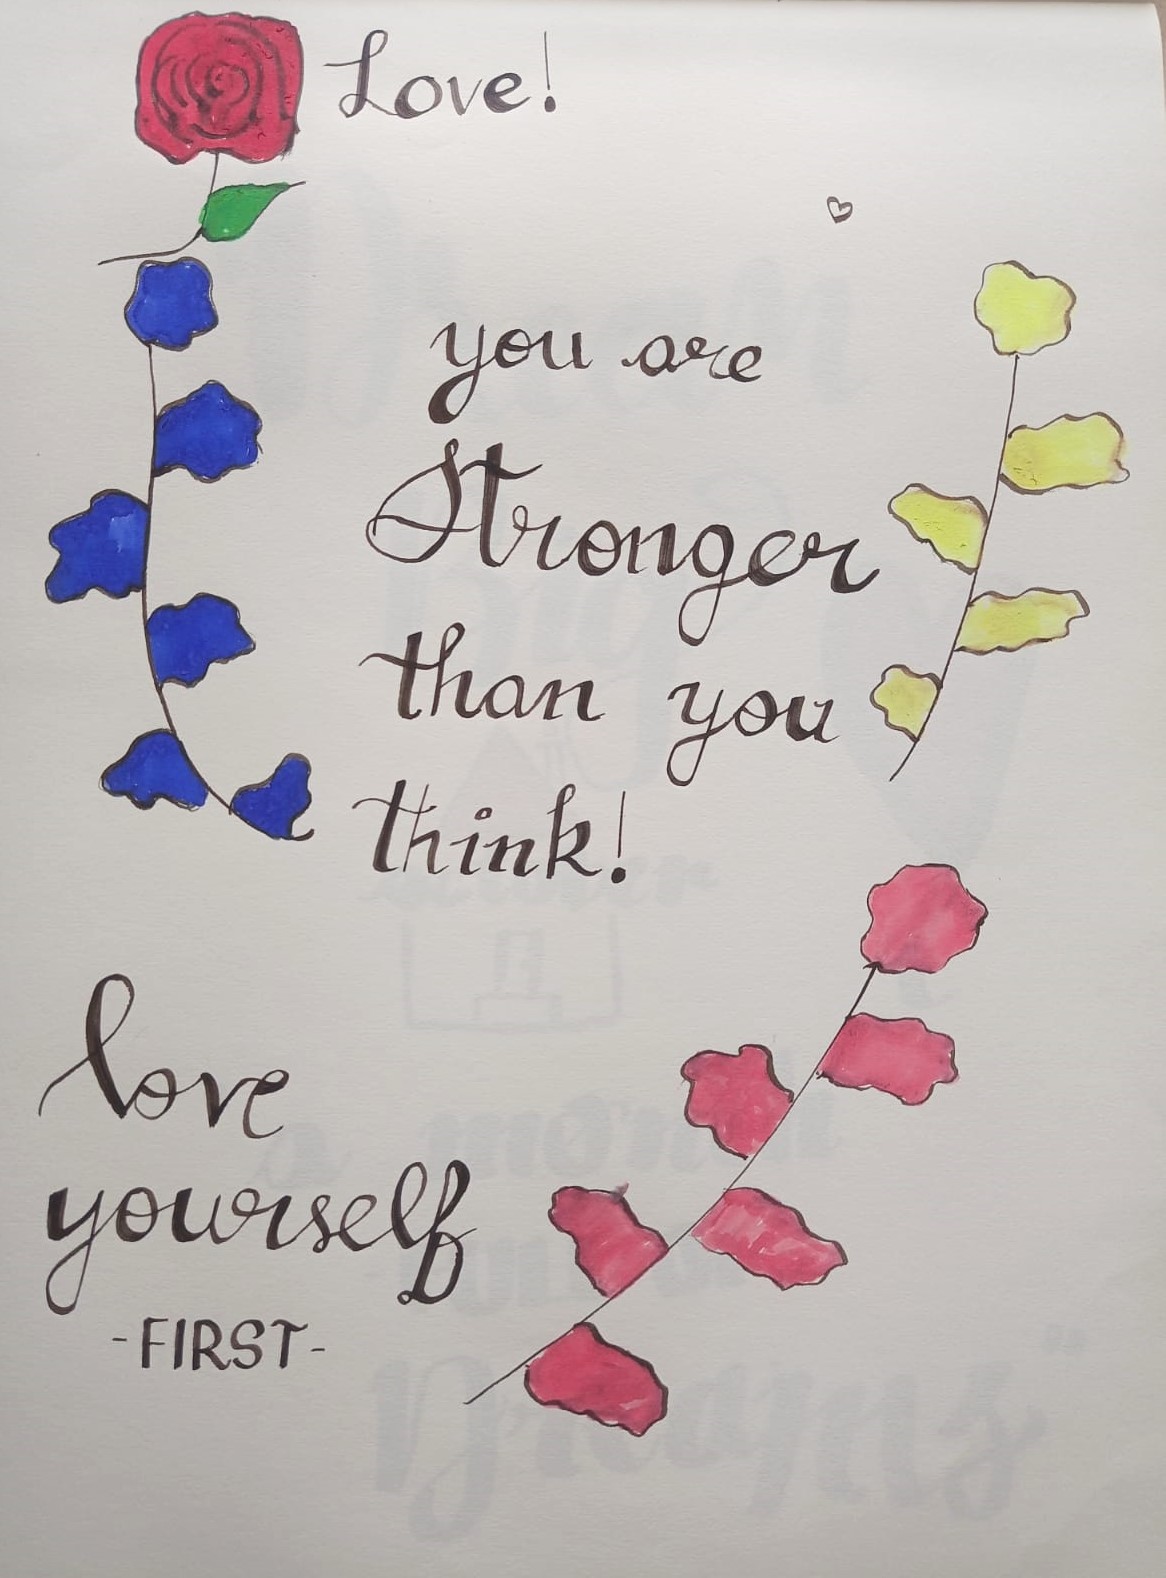 Love!
you are
Stronger
than you
think!
love
yourself
-FIRST-